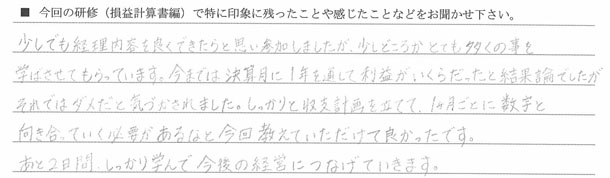 ■ 今回の研修（損益計算書編）で特に印象に残ったことや感じたことなどをお聞かせ下さい。
少しでも経理内容を良くできたらと思い参加しましたが、少しどころかとても多くの事を
学ばさせてもらっています。今までは決算月に1年を通して利益がいくらだったと結果論でしたが
それではダメだと気づかされました。しっかりと収支計画を立てて、1ヶ月ごとに数字と
向き合っていく必要があるなと今回教えていただけて良かったです。
あと2日間、しっかり学んで今後の経営につなげていきます。